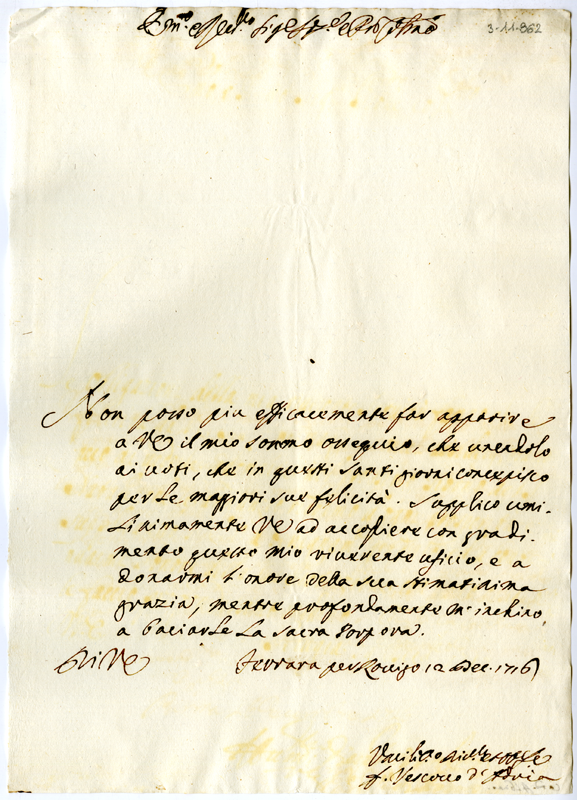 Em.mo e Rev.mo Sig.re Sig.re e Pron Col.mo
3-11-862
Non posso piu efficacemente far apparire
a VE il mio sommo ossequio, che unendolo
ai voti, che in questi santi giorni concepisco
per le maggiori sue felicità. Supplico umi-
lissimamente VE ad accogliere con gradi-
mento questo mio riverente uficio, e a
donarmi l'onore della sua stimatissima
grazia, mentre profondamente m'inchino,
a baciarle la sacra Porpora.
Di VE Ferrara per Rovigo 12 Dec. 1716
Umiliss.mo
f. Vescovo d'Adria